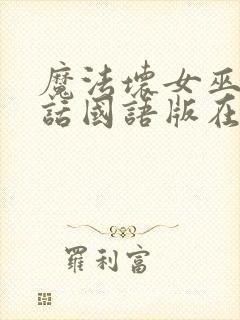 魔法壞女巫
話國語版在
羅利富